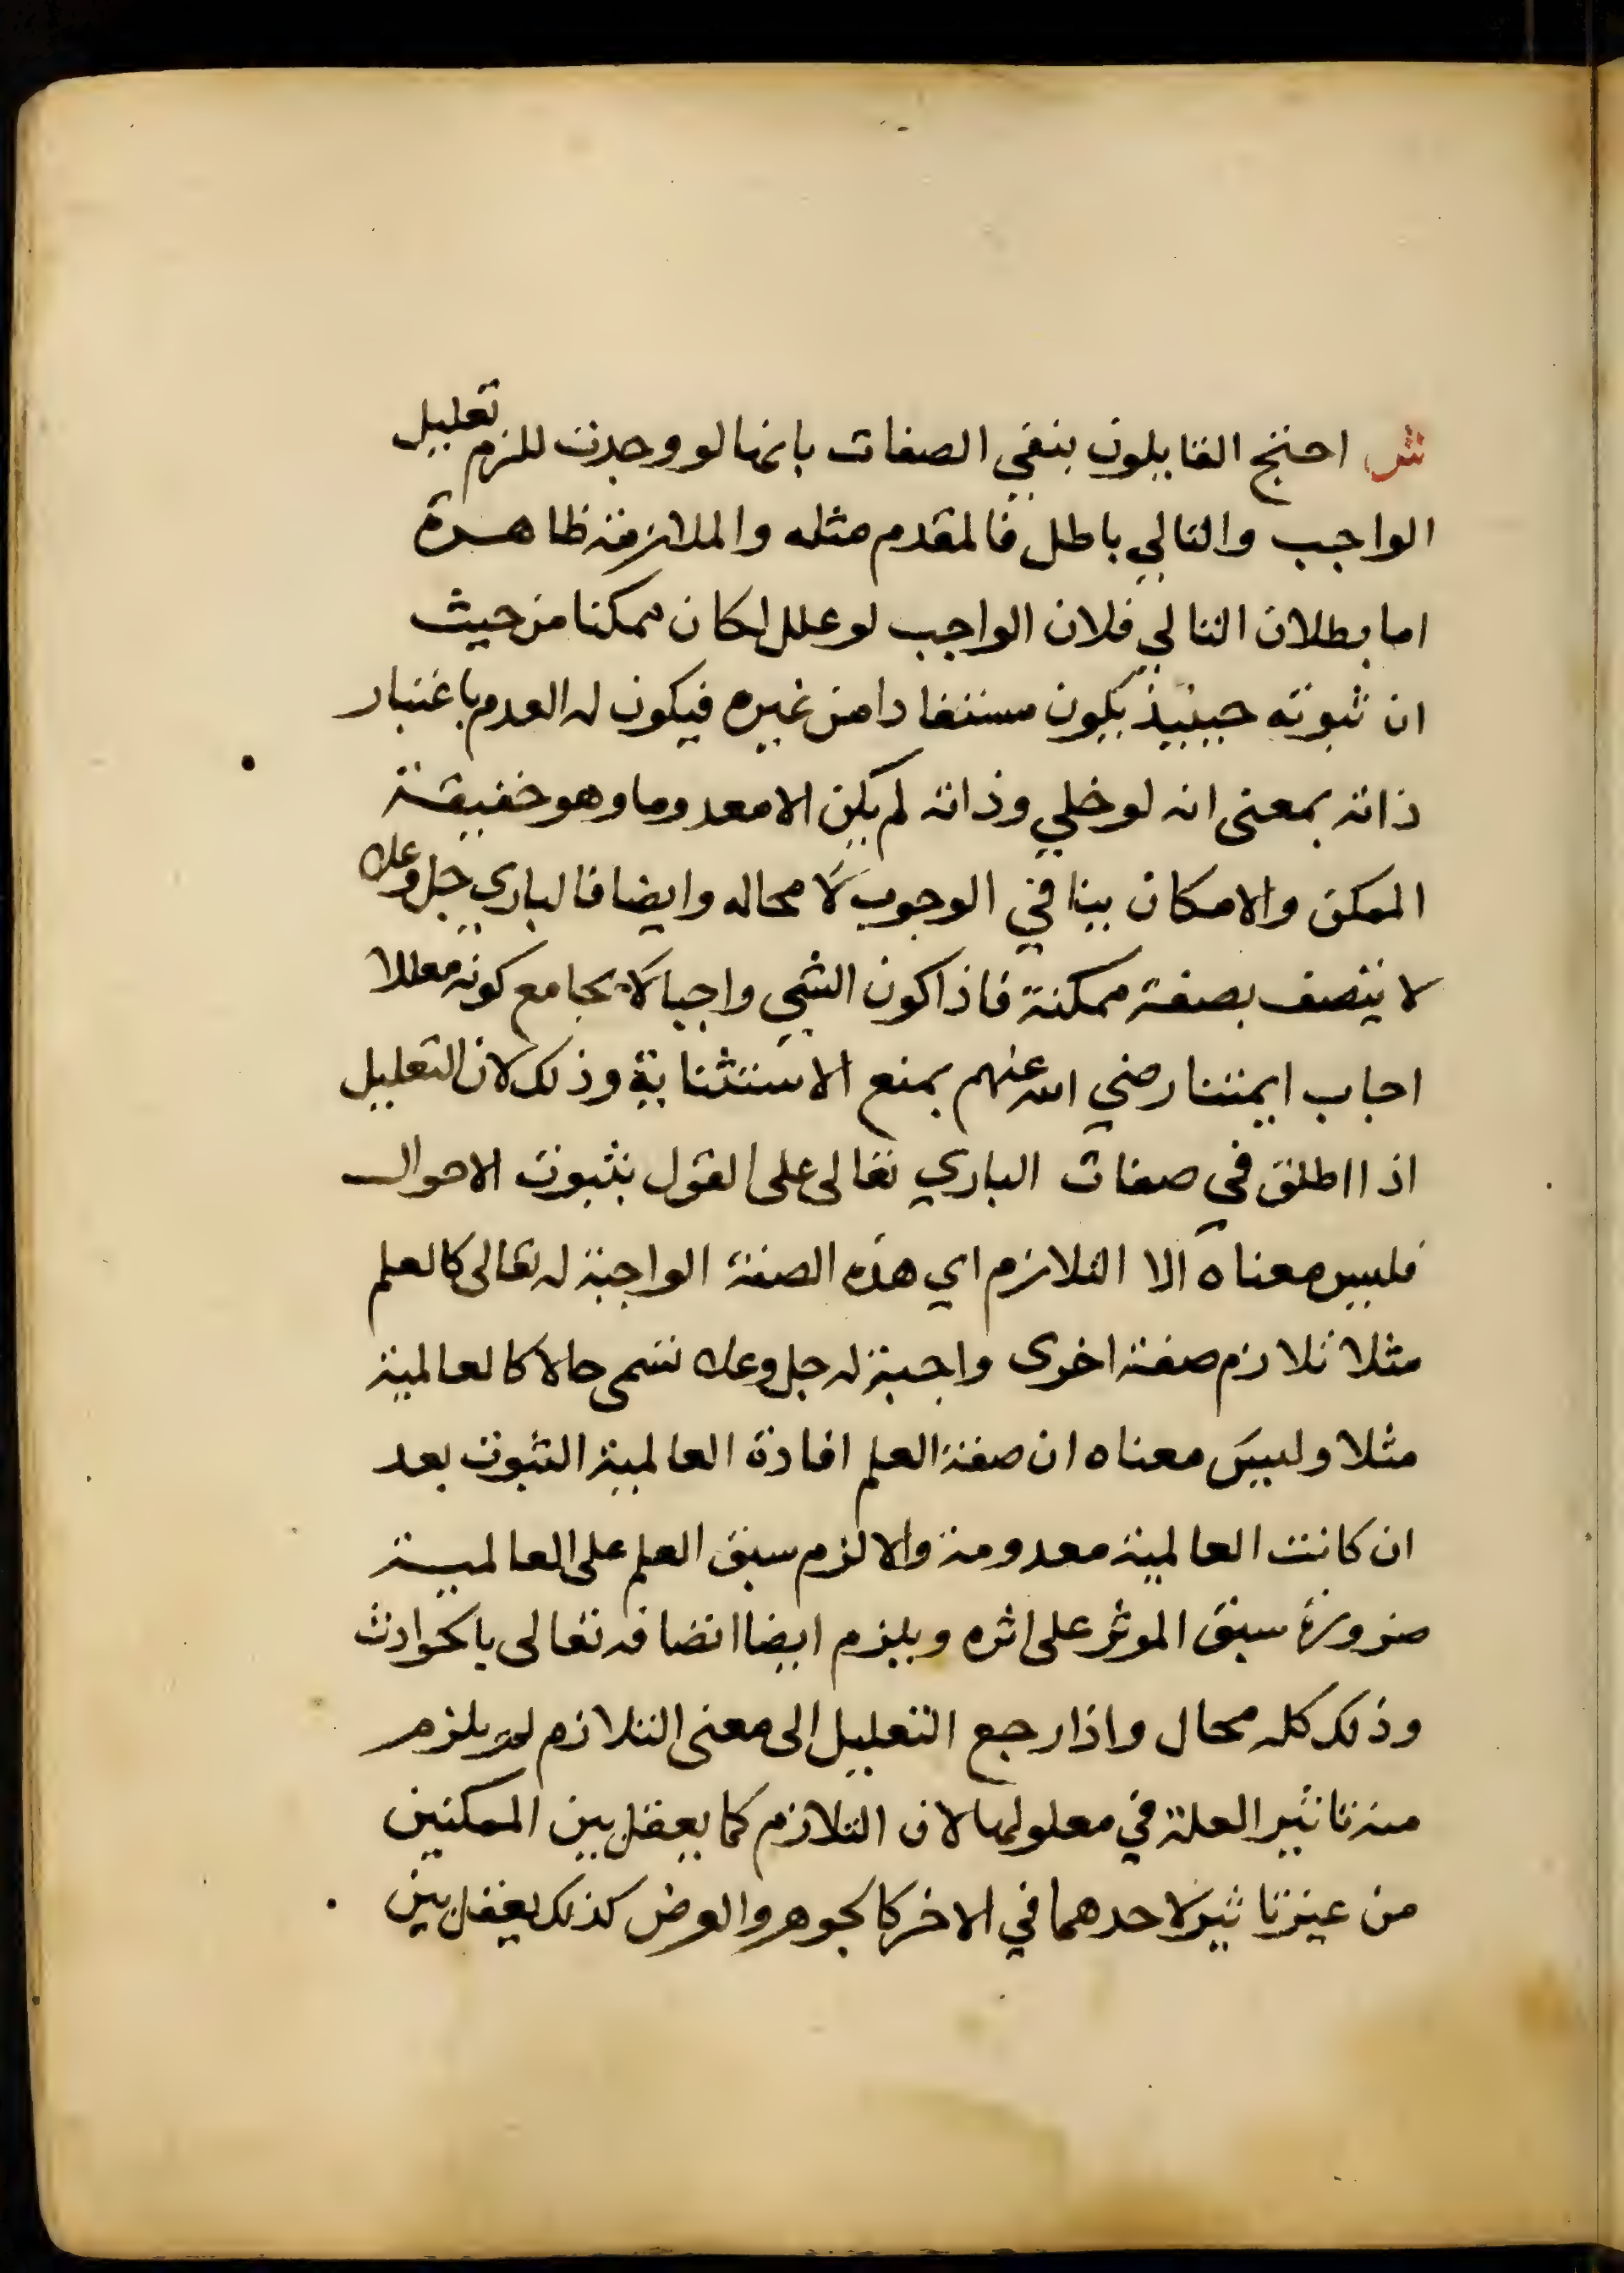 ش احتج القايلون بنفي الصفات بانها لو وجدت للزم تعليل
الواجب والتالي باطل فالمقدم مثله والملازمة ظاهرة
اما بطلان التالي فلان الواجب لو علل لكان ممكنا من حيث
ان ثبوته حينيذ يكون مستفادا من غيره فيكون له العدم باعتبار
ذاته بمعنى انه لو خلي وذاته لم يكن الا معدوما وهو حقيقة
الممكن والامكان ينافي الوجوب لا محاله وايضا فالباري جل وعلا
لا يتصف بصفة ممكنة فاذا كون الشي واجبا لا يجامع كونه معللا
اجاب ايمتنا رضي الله عنهم بمنع الاستثناية وذلك لان التعليل
اذا اطلق في صفات الباري تعالى على القول بثبوت الاحوال
فليس معناه الا التلازم اي هذه الصفة الواجبة له تعالى كالعلم
مثلا تلازم صفة اخرى واجبة له جل وعلا تسمى حالا كالعالمية
مثلا وليس معناه ان صفة العلم افادة العالمية الثبوت بعد
ان كانت العالمية معدومة والا لزم سبق العلم على العالمية
ضرورة سبق الموثر على اثره ويلزم ايضا اتصافه تعالى بالحوادث
وذلك كله محال واذا رجع التعليل الى معنى التلازم لم يلزم
منه تاثير العلة في معلولها لان التلازم كما يعقل بين الممكنين
من غير تاثير لاحدهما في الاخر كالجوهر والعرض كذلك يعقل بين